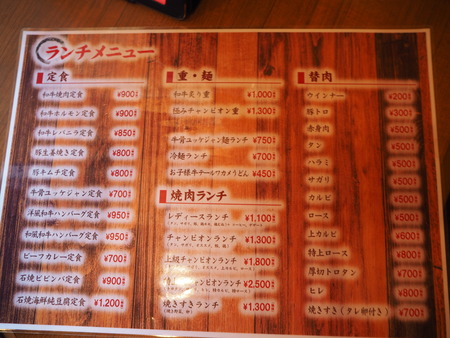 ランチメニュー
定食
和牛焼肉定食 ¥900
和牛ホルモン定食 ¥900
和牛レバニラ定食 ¥850
豚生姜焼き定食 ¥800
豚キムチ定食 ¥800
牛骨ユッケジャン定食 ¥700
洋風和牛ハンバーグ定食 ¥950
和風和牛ハンバーグ定食 ¥950
ビーフカレー定食 ¥700
石焼ビビンバ定食 ¥900
石焼海鮮純豆腐定食 ¥1,200
重・麺
和牛炙り重 ¥1,000
極みチャンピオン重 ¥1,300
牛骨ユッケジャン麺ランチ ¥750
冷麺ランチ ¥700
お子様牛テールワカメうどん ¥450
焼肉ランチ
レディースランチ ¥1,100
チャンピオンランチ ¥1,300
上級チャンピオンランチ ¥1,800
チャンピオンランチ ¥2,500
焼きすきランチ ¥1,300
替肉
ウインナー ¥200
豚トロ ¥300
赤身肉
タン
ハラミ
サガリ
カルビ
ロース
上カルビ ¥600
特上ロース ¥800
厚切トロタン ¥700
ヒレ ¥800
焼きすき(タレ卵付き) ¥700